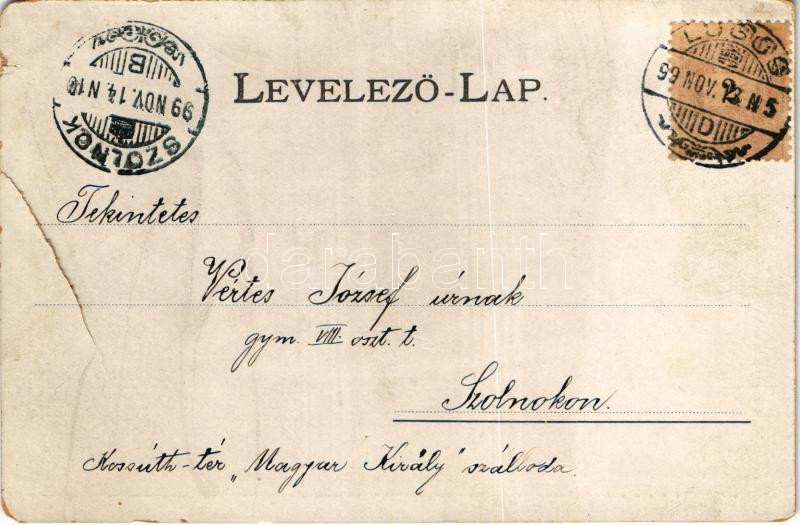 SZOLNOK
99 NOV. 14. N 10
B
LEVELEZŐ-LAP.
LUGOS
99 NOV. 13. N 5
D
Tekintetes
Vértes József úrnak
gym. VIII. oszt. t.
Szolnokon.
Kossúth-tér „Magyar Király" szálloda.
darabanth